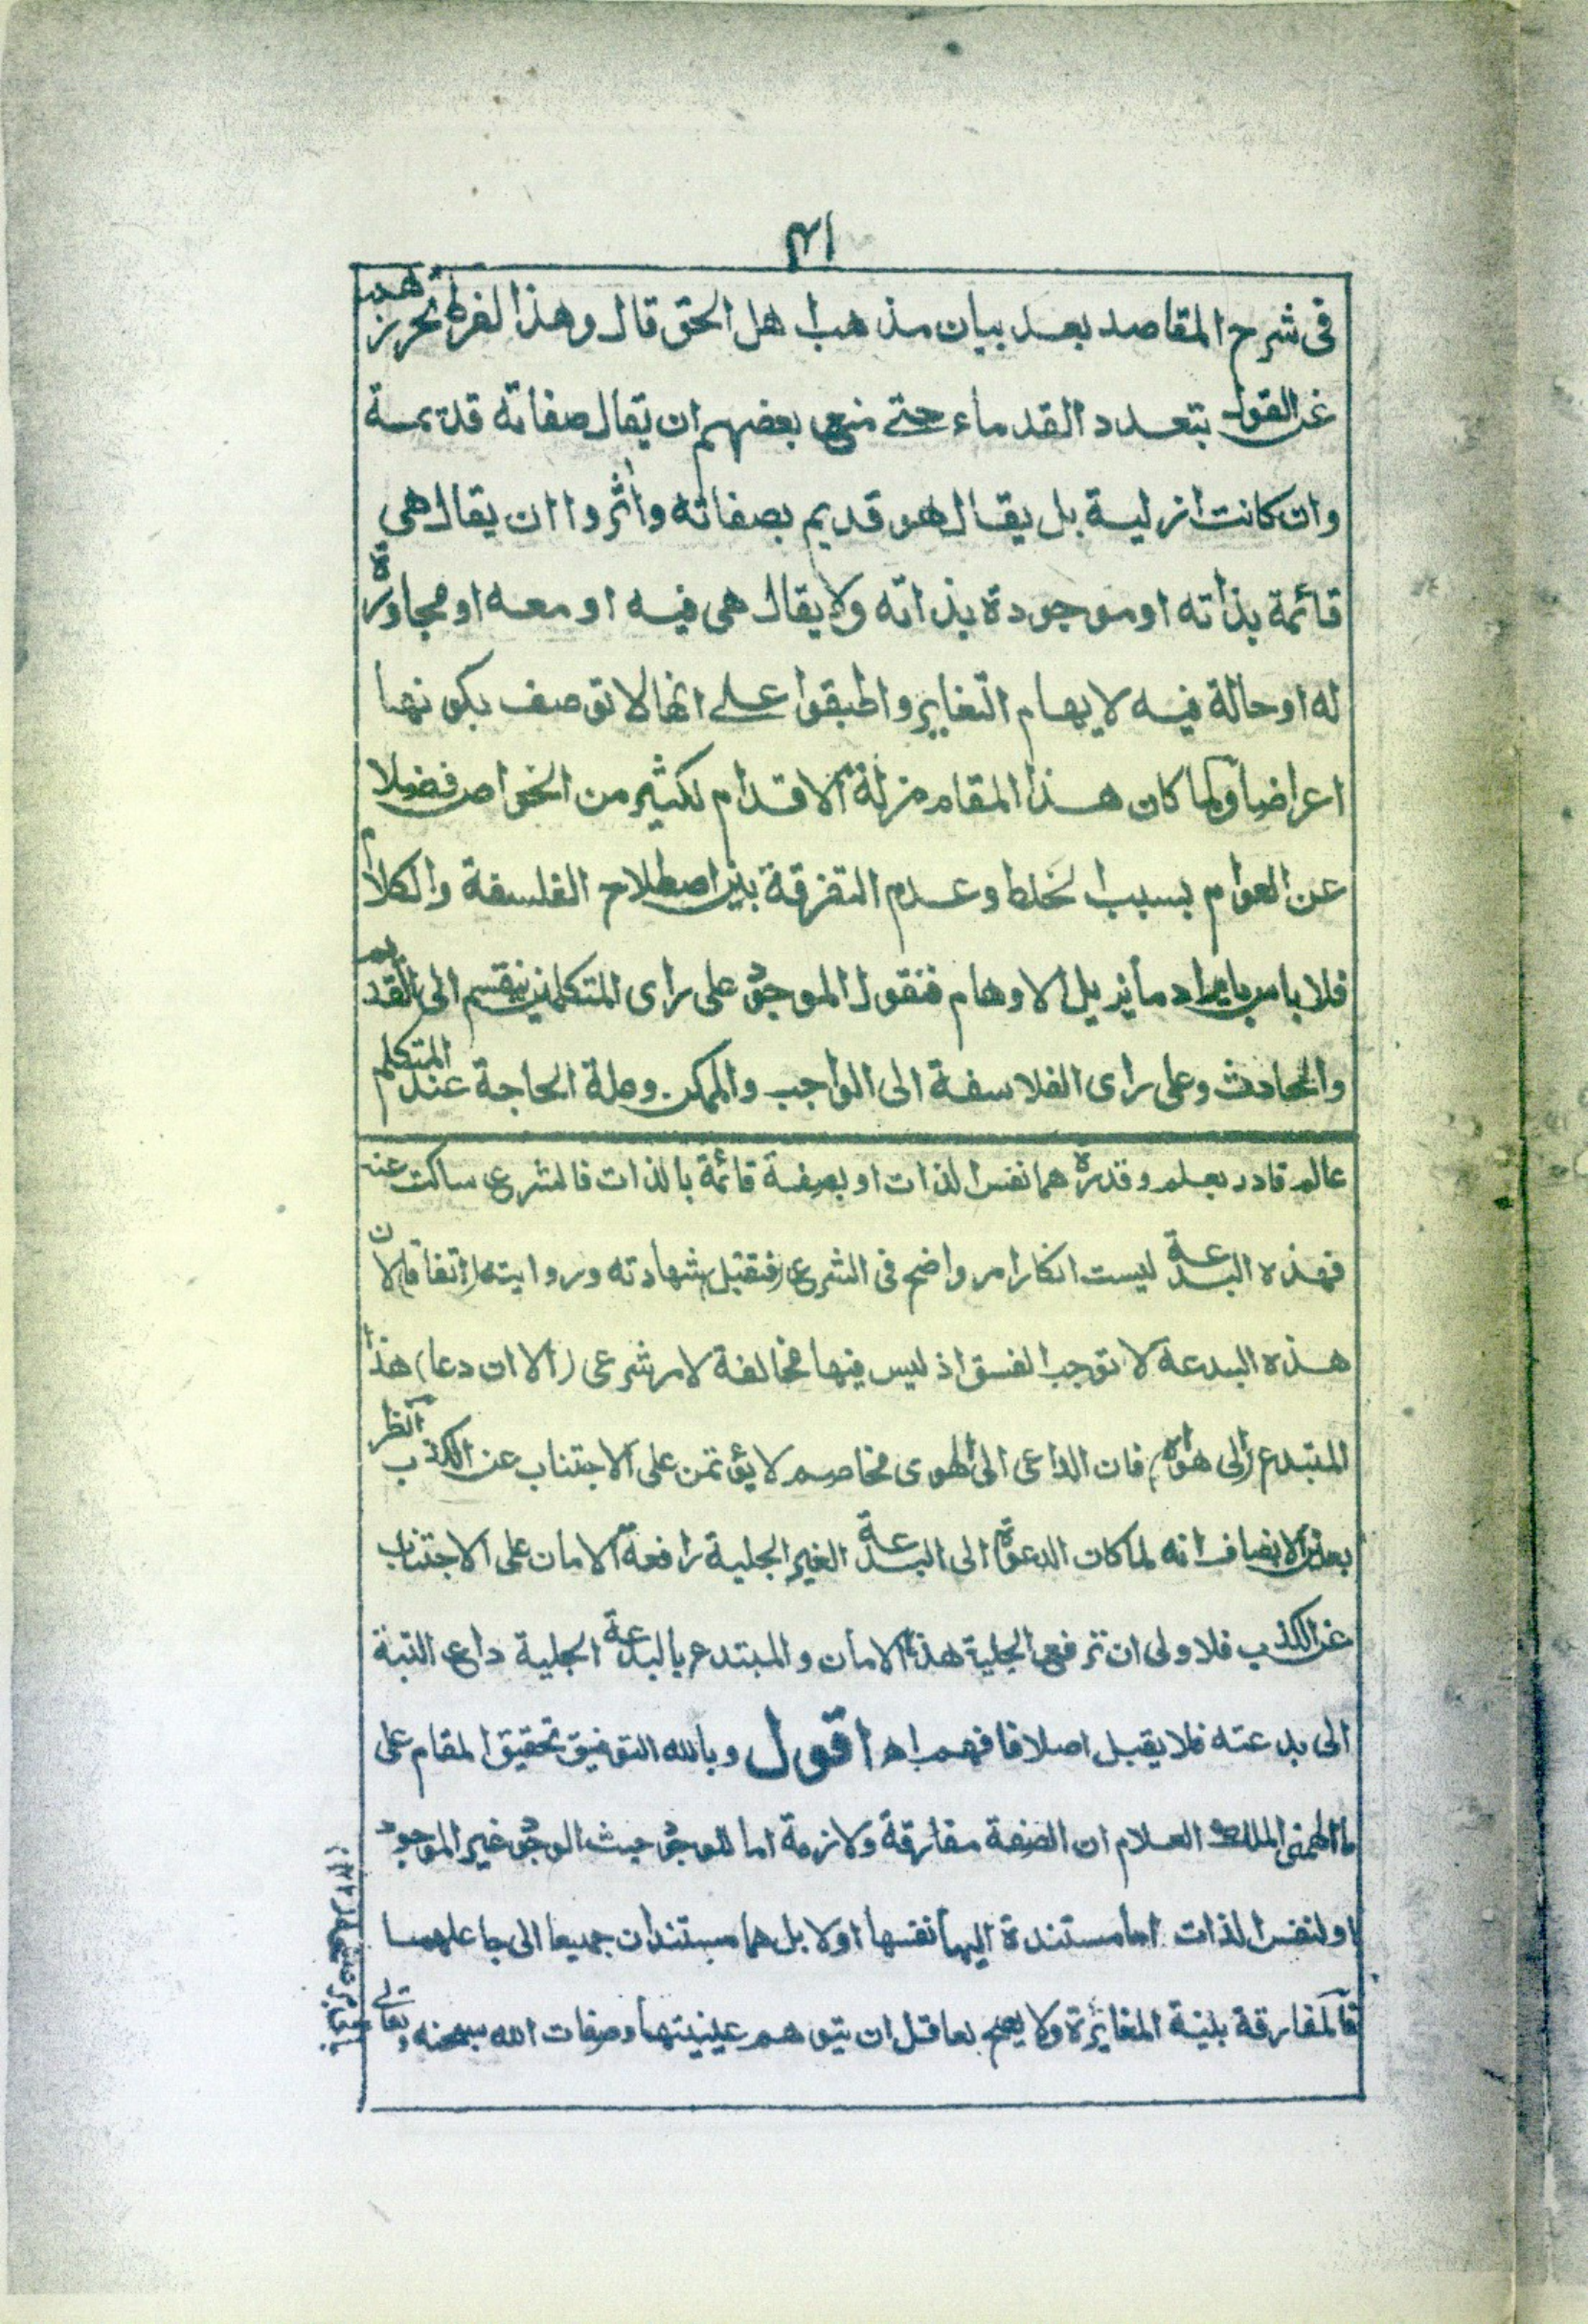 ٤١
فى شرح المقاصد بعد بيان مذهب اهل الحق قال وهذا لفرط تحرزهم
عن القول بتعدد القدماء حتے منع بعضهم ان يقال صفاته قديمة
وان كانت ازلية بل يقال هو قديم بصفاته واثروا ان يقال هى
قائمة بذاته او موجودة بذاته ولا يقال هى فيه او معه او مجاورة
له او حالة فيه لايهام التغاير واطبقوا علے انها لا توصف بكونها
اعراضا ولما كان هذا المقام مزلة الاقدام لكثير من الخواص فضلا
عن العوام بسبب الخلط وعدم التفرقة بين اصطلاح الفلسفة والكلام
فلا باس بايراد ما يزيل الاوهام فنقول الموجود على راى المتكلمين ينقسم الى القديم
والحادث وعلى راى الفلاسفة الى الواجب والممكن وعلة الحاجة عند المتكلم
عالم قادر بعلم وقدرة هما نفس الذات او بصفة قائمة بالذات فالشرع ساكت عنه
فهذه البدعة ليست انكار امر واضح فى الشرع (فتقبل) شهادته وروايته (اتفاقا) لان
هذه البدعة لا توجب الفسق اذ ليس فيها مخالفة لامر شرعى (الا ان دعا) هذا
المبتدع (الى هواه) فان الداعى الى الهوى مخاصم لا يؤتمن على الاجتناب عن الكذب انظر
بعين الانصاف انه لما كان الدعوة الى البدعة الغير الجلية رافعة الامان على الاجتناب
عن الكذب فلاولى ان ترفع الجلية هذا الامان والمبتدع بالبدعة الجلية داع البتة
الى بدعته فلا يقبل اصلا فافهم اھ اقول وبالله التوفيق تحقيق المقام على
ما الهمنى الملك العلام ان الصفة مفارقة ولازمة اما للوجود حيث الوجود غير الموجود
او لنفس الذات اما مستندة اليها نفسها اولا بل هما مستندان جميعا الى جاعلهما
فالمفارقة بينة المغايرة ولا يصح لعاقل ان يتوهم عينيتها وصفات الله سبحنه وتعالے